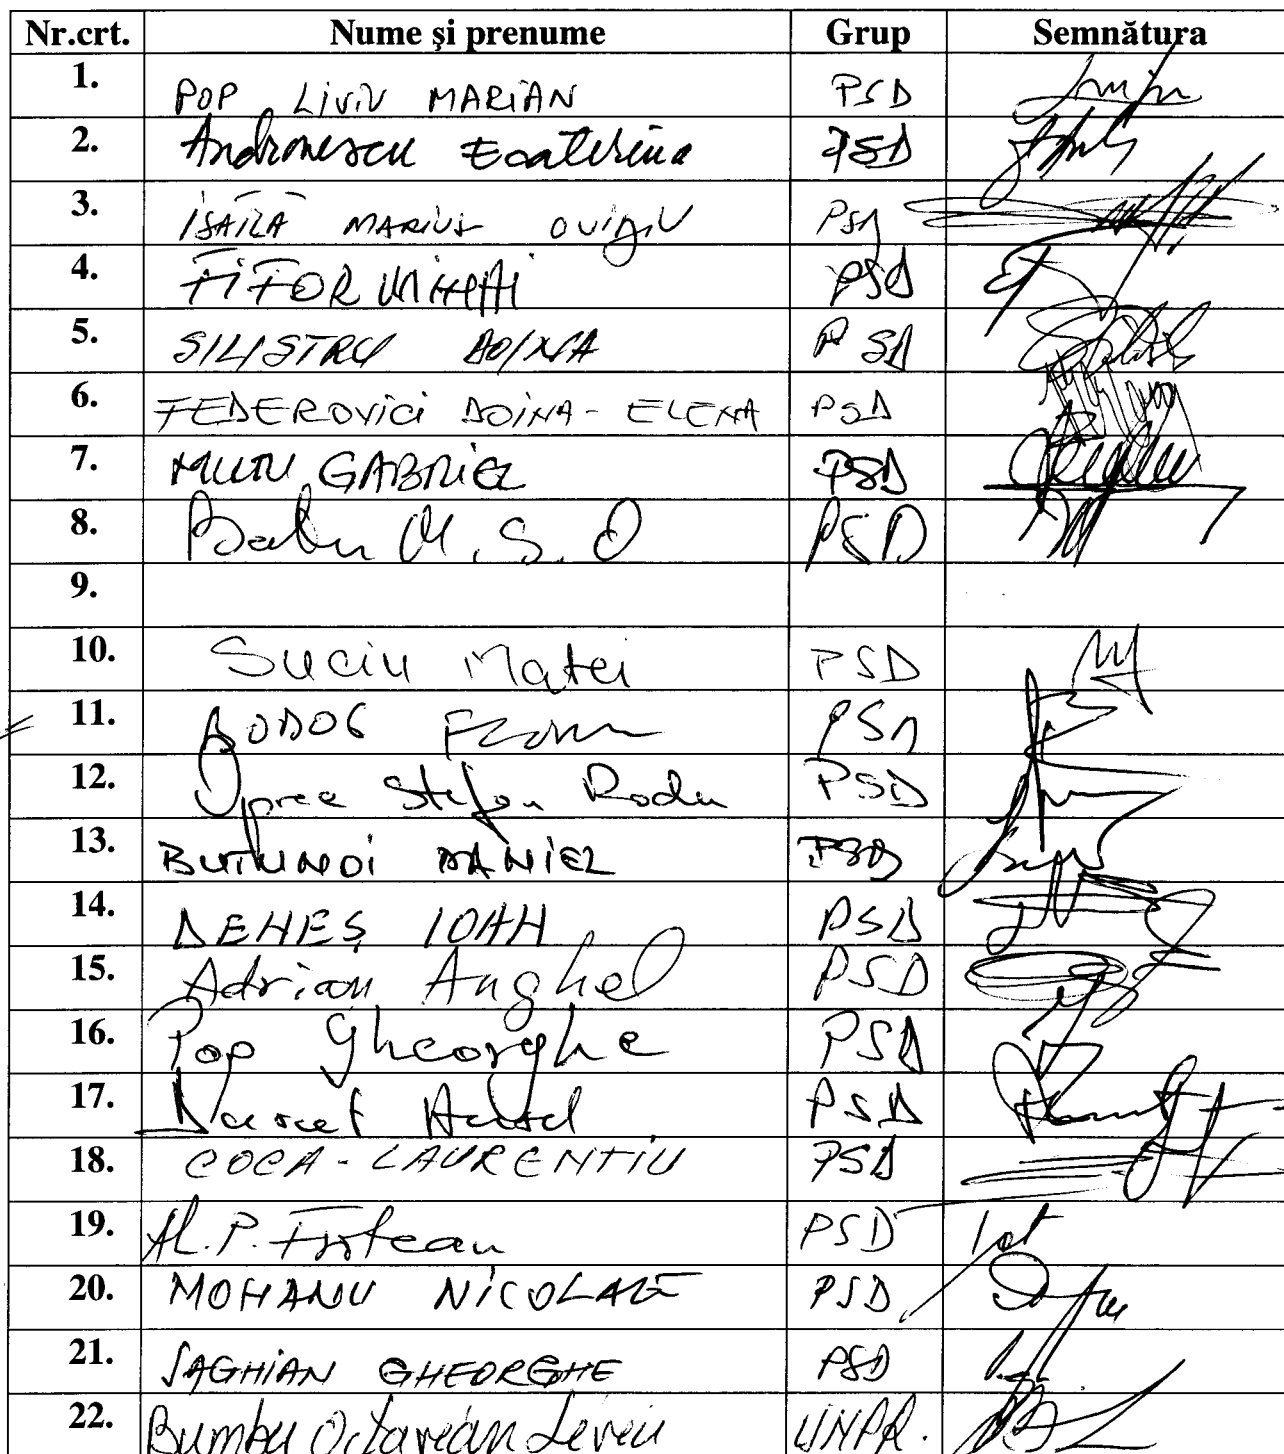 Nr.crt. Nume şi prenume Grup Semnătura
1. POP LIVIU MARIAN PSD
2. Andronescu Ecaterina PSD
3. ISĂILĂ MARIUS OVIDIU PSD
4. FIFOR MIHAI PSD
5. SILISTRU DOINA PSD
6. FEDEROVICI DOINA - ELENA PSD
7. MUTU GABRIEL PSD
8. M. S. O PSD
9.
10. Suciu Matei PSD
11. BODOG PSD
12. Oprea Ștefan Radu PSD
13. BUTUNOI DANIEL PSD
14. DENEȘ IOAN PSD
15. Adrian Anghel PSD
16. Pop Gheorghe PSD
17. PSD
18. COCA - LAURENȚIU PSD
19. Al. P. PSD
20. MOHANU NICOLAE PSD
21. SAGHIAN GHEORGHE PSD
22. Bumbu Octavian Liviu UNPR.